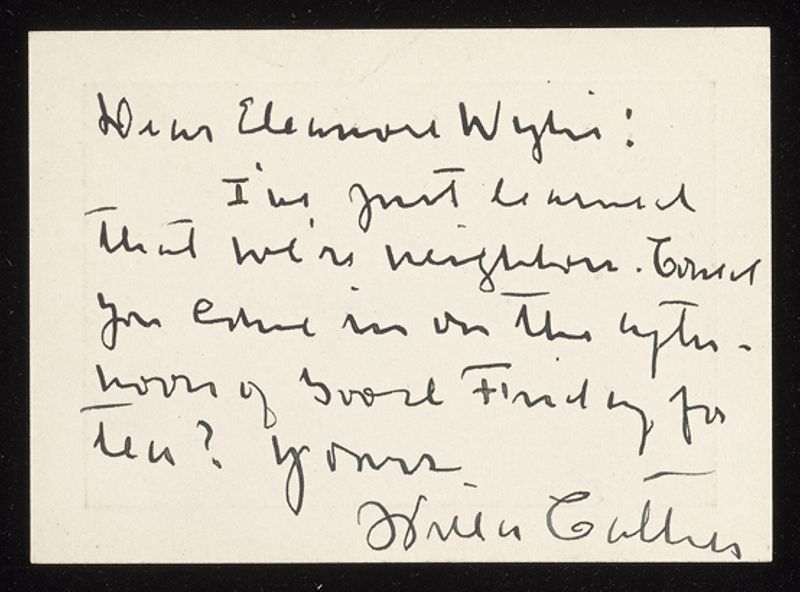 Dear Eleanore Wylie:
I've just learned
that we're neighbors. Could
you come in on the after-
noon of Good Friday for
tea? Yours
Willa Cather